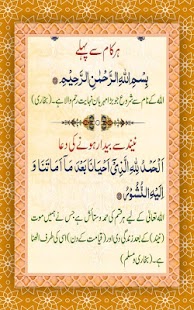 ہر کام سے پہلے
بِسْمِ اللهِ الرَّحْمٰنِ الرَّحِيْمِ
اللہ کے نام سے شروع جو بڑا مہربان نہایت رحم والا ہے۔ (بخاری)
نیند سے بیدار ہونے کی دعا
اَلْحَمْدُ لِلّٰهِ الَّذِيْٓ اَحْيَانَا بَعْدَ مَآ اَمَاتَنَا وَ
اِلَيْهِ النُّشُوْرُ
اللہ تعالیٰ کے لیے ہر قسم کی حمد و ستائش ہے جس نے ہمیں موت
(نیند) کے بعد زندگی دی اور (قیامت کے دن) اسی کی طرف اٹھنا
ہے۔ (بخاری و مسلم)